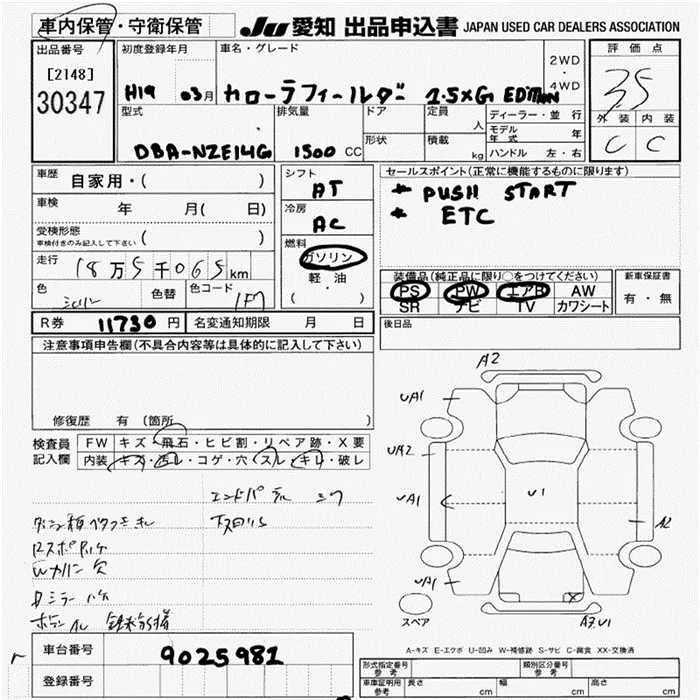 車内保管・守衛保管
JU 愛知 出品申込書 JAPAN USED CAR DEALERS ASSOCIATION
出品番号
[2148]
30347
初度登録年月
H19 03月
車名・グレード
カローラフィールダー 1.5×G EDITION
2WD
・
4WD
評価点
3.5
外装 内装
C C
型式
DBA-NZE141G
排気量
1500 CC
ドア
形状
定員 人
積載 kg
ディーラー・並行
モデル年式 年
ハンドル 左・右
車歴
自家用・( )
車検 年 月( 日)
受検形態
車検付きのみ記入して下さい ( )
走行
18万5千065km
色 シルバー 色替 色コード 1F7
シフト
AT
冷房
AC
燃料
ガソリン
軽・油
( ・ )
セールスポイント(正常に機能するものに限ります)
* PUSH START
* ETC
装備品(純正品に限り○をつけてください)
PS PW エアB AW
SR ナビ TV カワシート
新車保証書
有・無
後日品
R券 11730円 名変通知期限 月 日
注意事項申告欄(不具合内容等は具体的に記入して下さい)
修復歴 有 (箇所 )
検査員記入欄
FW キズ・飛石・ヒビ割・リペア跡・X要
内装 キズ・汚レ・コゲ・穴・スレ・キレ・破レ
下回りS
A2
UA1
UA2
UA1
U1
A2
UA1
スペア
A3.U1
A-キズ E-エクボ U-凹み W-補修跡 S-サビ C-腐食 XX-交換済
車台番号
9025981
登録番号
形式指定番号 参考
類別区分番号 参考
車庫証明用 参考 長さ cm 幅 cm 高さ cm